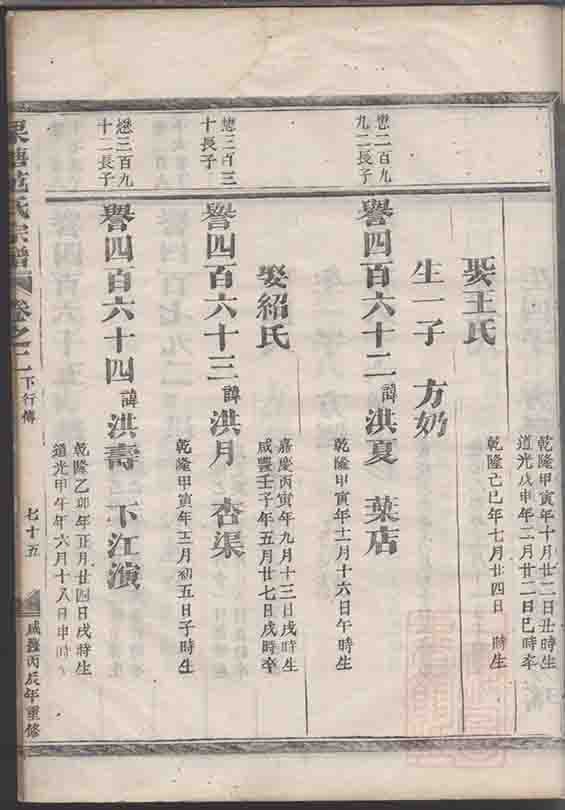 乾隆甲寅年十月廿二日丑時生
道光戊申年二月廿二日巳時卒
娶王氏
乾隆己巳年七月廿四日 時生
生一子 方奶
懋二百九
九二長子
譽四百六十二 諱 洪夏 葉店
乾隆甲寅年十一月十六日午時生
娶紹氏
嘉慶丙寅年九月十三日戌時生
咸豐壬子年五月廿七日戌時卒
懋三百三
十長子
譽四百六十三 諱 洪月 杏渠
乾隆甲寅年三月初五日子時生
懋三百九
十二長子
譽四百六十四 諱 洪壽 下江演
乾隆乙卯年正月廿四日戌時生
道光甲午年六月十八日申時
氏宗譜 卷之二 下行傳 七十五 咸豐丙辰年重修